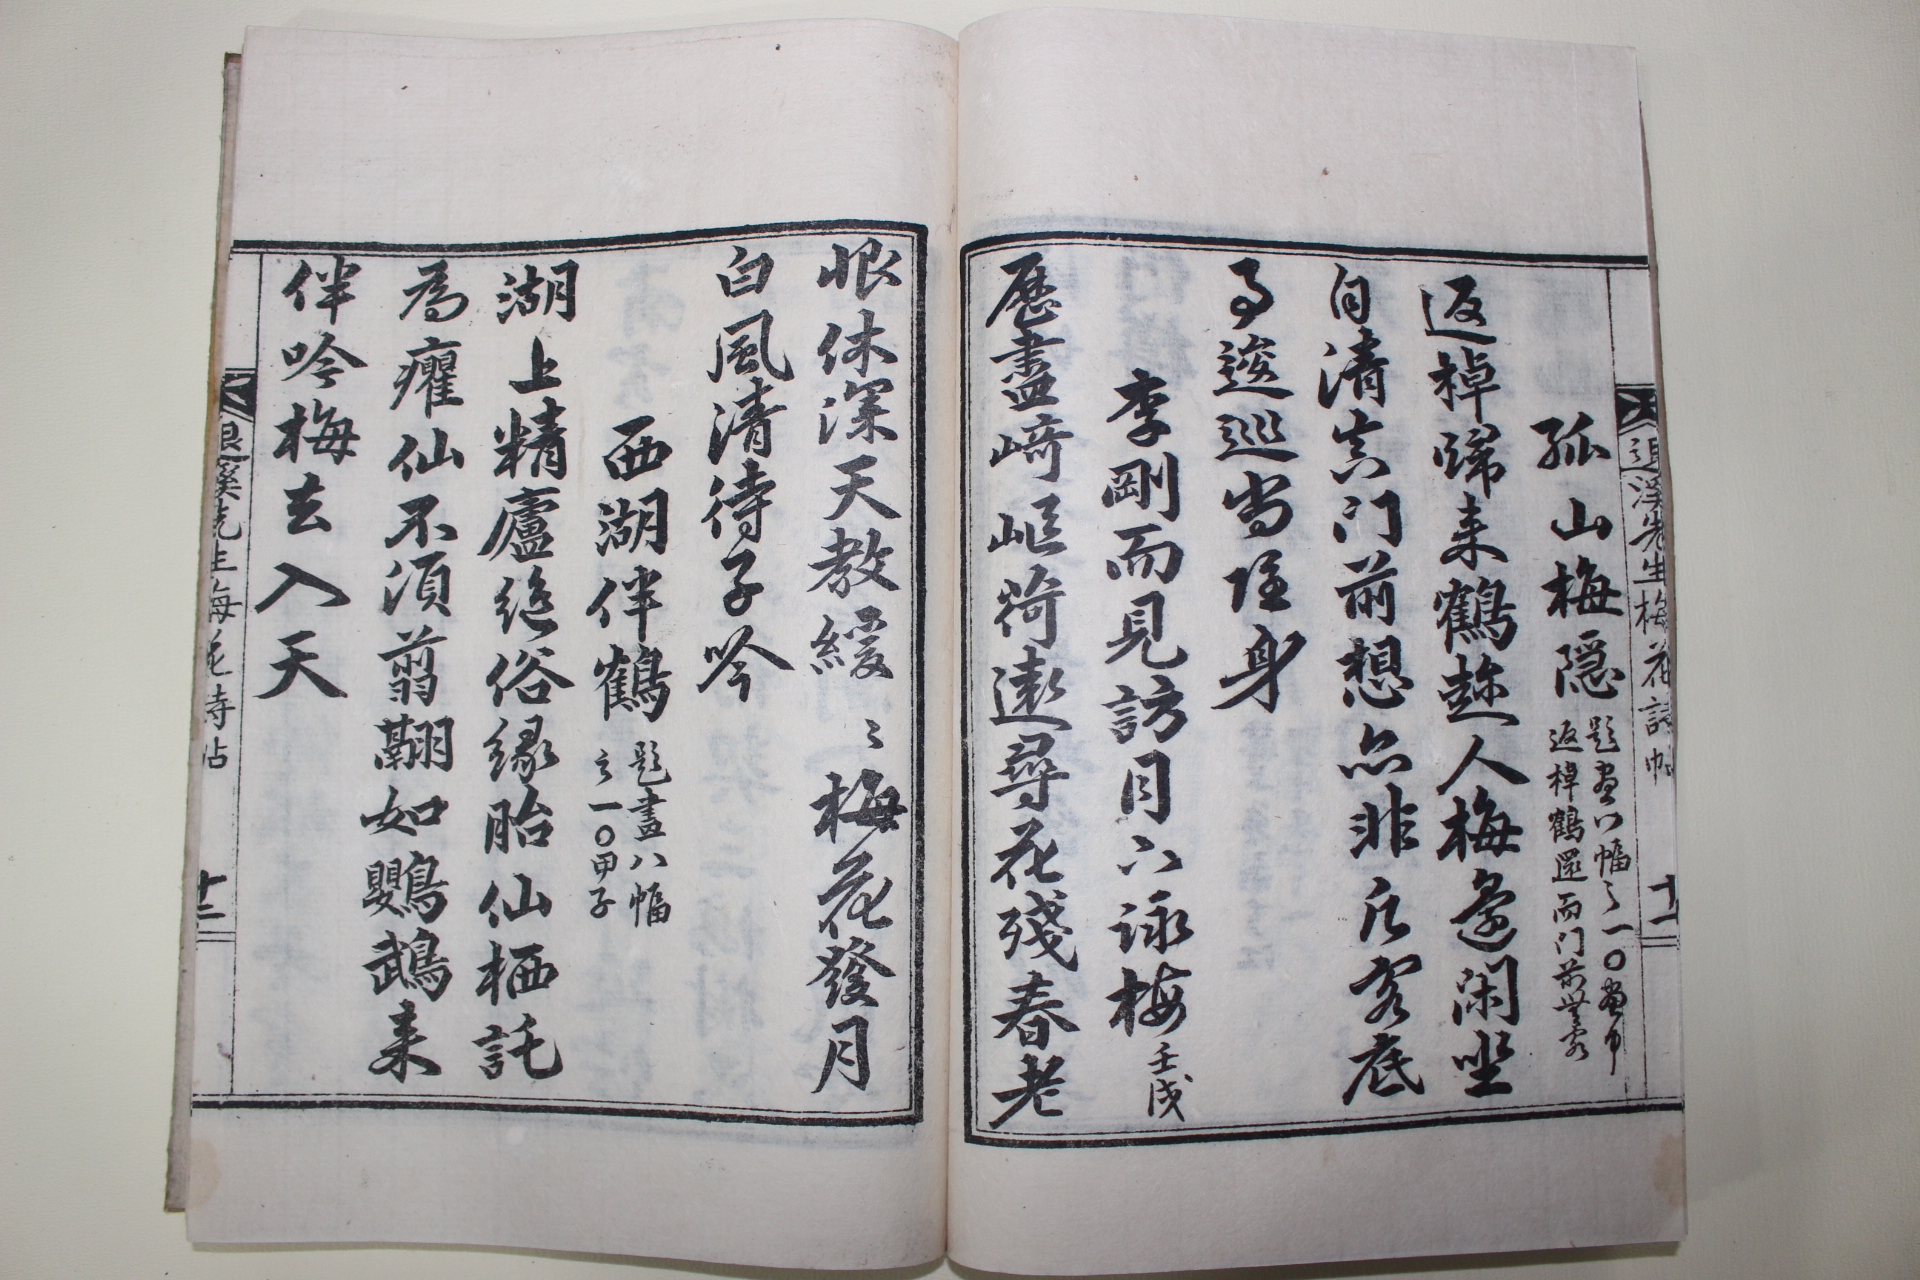 退溪先生梅花詩帖
十一
孤山梅隱
題畫八幅之一○畫中
返棹鶴還而門前無客
返棹歸来鶴趂人梅邊閑坐
自清真門前想亦非凡客底
事逡巡尚隱身
李剛而見訪月下詠梅
壬戌
歷盡崎嶇荷遠尋花殘春老
恨休深天教緩緩梅花發月
白風清待子吟
西湖伴鶴
題畫八幅
之一○甲子
湖上精廬絶俗緣胎仙栖託
為癯仙不須剪翮如鸚鵡来
伴吟梅去入天
退溪先生梅花詩帖
十二